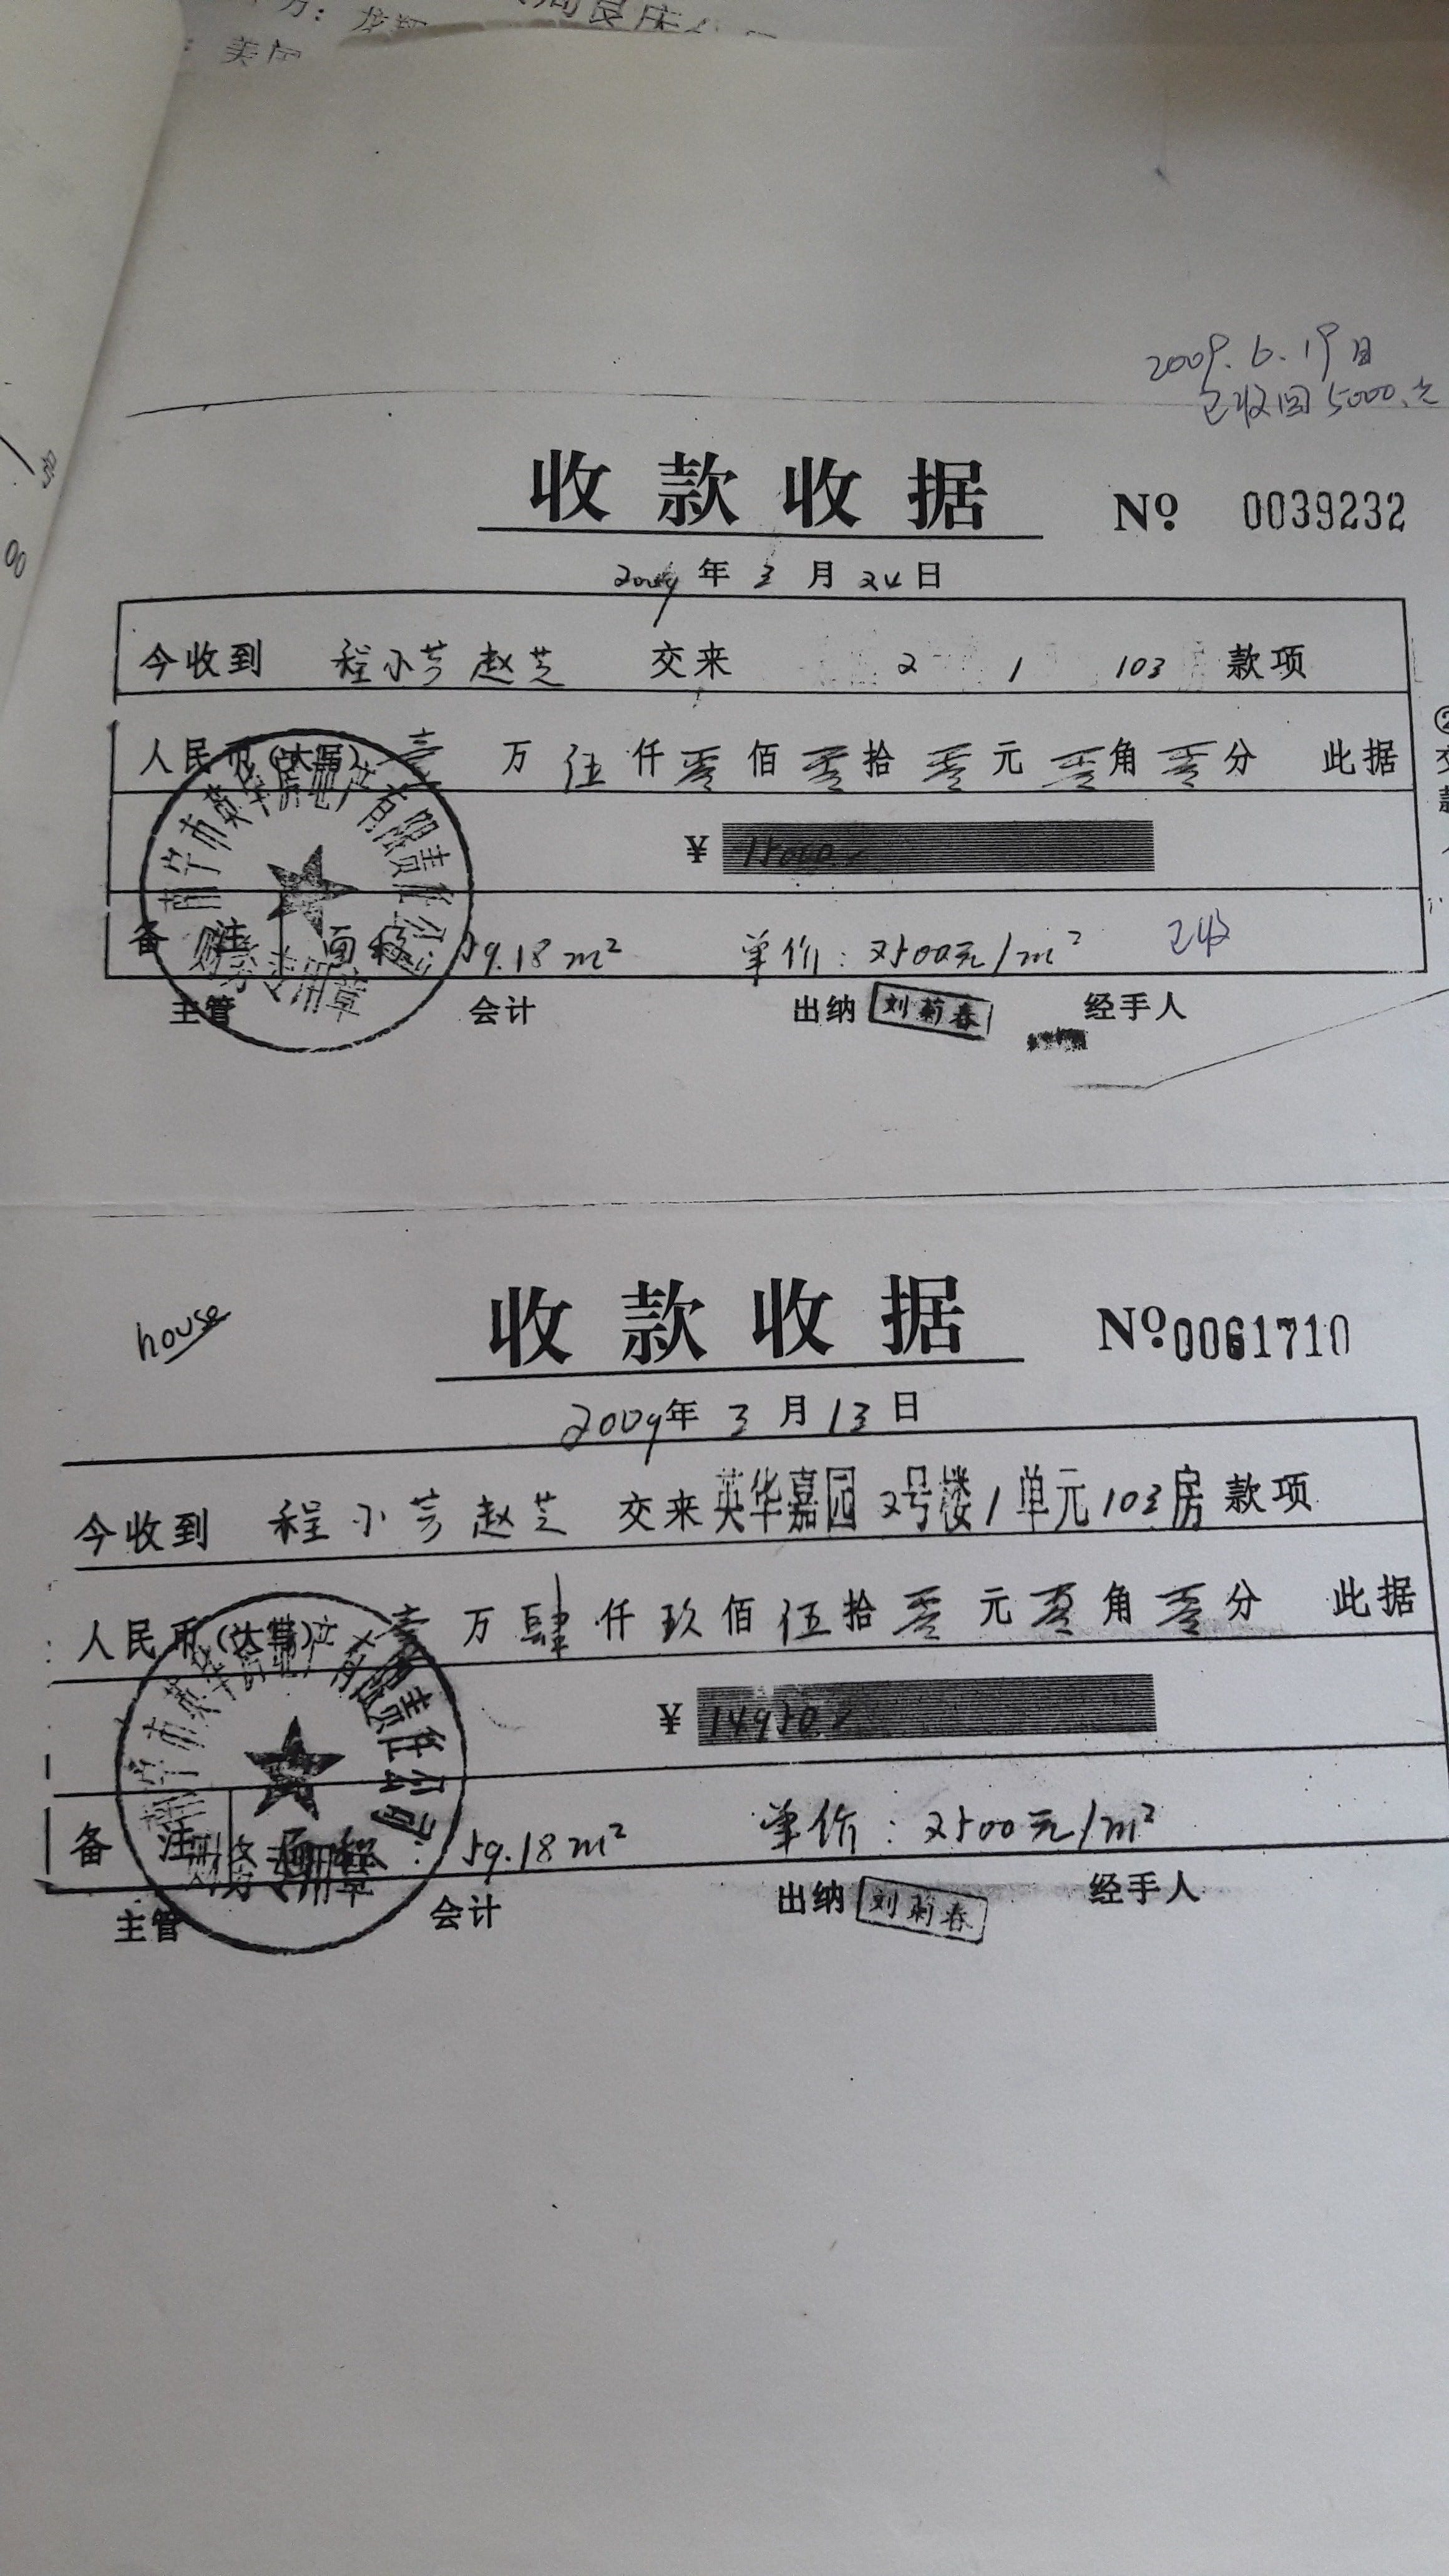 美居
2009.6.19日
已收回5000.元
收款收据 Nº 0039232
2009年3月24日
今收到 程小芳赵芝 交来 2 1 103 款项
人民币(大写) 壹万伍仟零佰零拾零元零角零分 此据
¥ 15000
备注 面积 59.18m² 单价：2500元/m² 已收
主管 会计 出纳 刘菊春 经手人
南宁市英华房地产有限责任公司
财务专用章
house
收款收据 Nº 0061710
2009年3月13日
今收到 程小芳赵芝 交来英华嘉园2号楼1单元103房款项
人民币(大写) 壹万肆仟玖佰伍拾零元零角零分 此据
¥ 14950
备注 面积：59.18m² 单价：2500元/m²
主管 会计 出纳 刘菊春 经手人
南宁市英华房地产有限责任公司
财务专用章